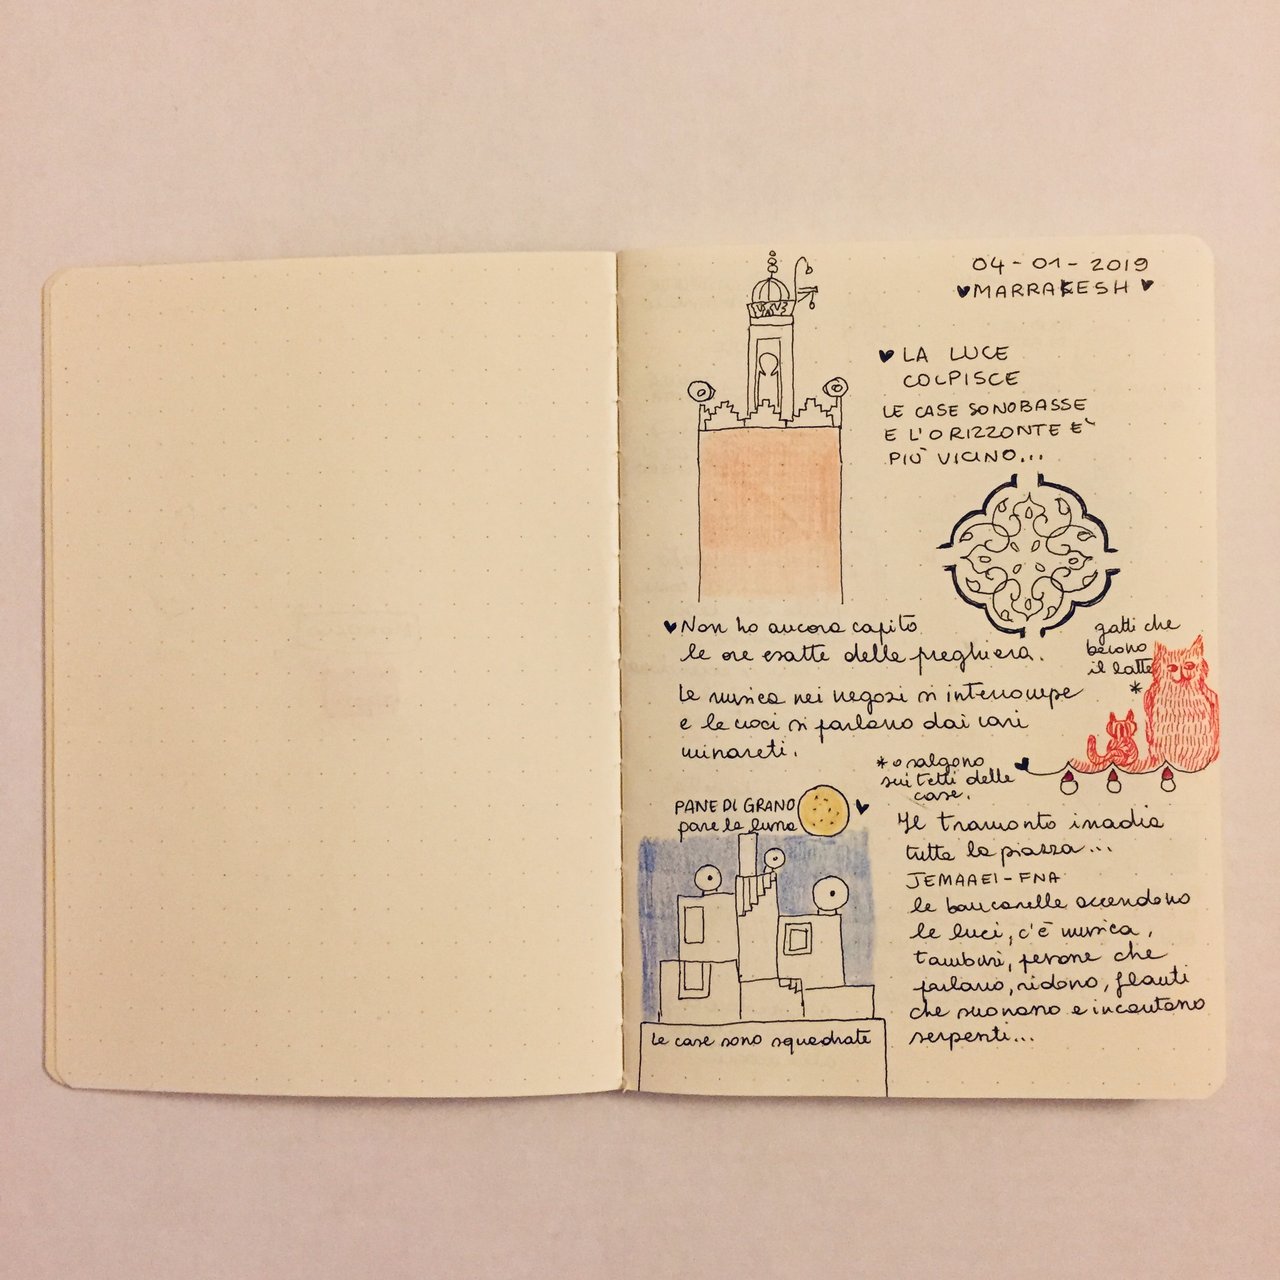 04-01-2019
MARRAKESH
LA LUCE
COLPISCE
LE CASE SONO BASSE
E L'ORIZZONTE È
PIÙ VICINO...
Non ho ancora capito
le ore esatte della preghiera.
La musica nei negozi si interrompe
e le voci si parlano dai vari
minareti.
gatti che
bevono
il latte
*
* o salgono
sui tetti delle
case.
PANE DI GRANO
pare la luna
Le case sono squadrate
Il tramonto irradia
tutta la piazza...
JEMAAEl-FNA
le bancarelle accendono
le luci, c'è musica,
tamburi, persone che
parlano, ridono, flauti
che suonano e incantano
serpenti...